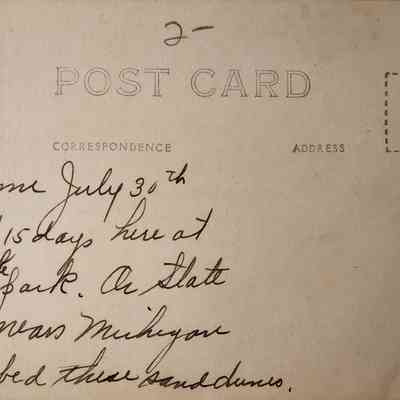 2-
POST CARD
CORRESPONDENCE ADDRESS
me July 30th
15 days here at
park. Or State
nears Michigan
bed these sand dunes.